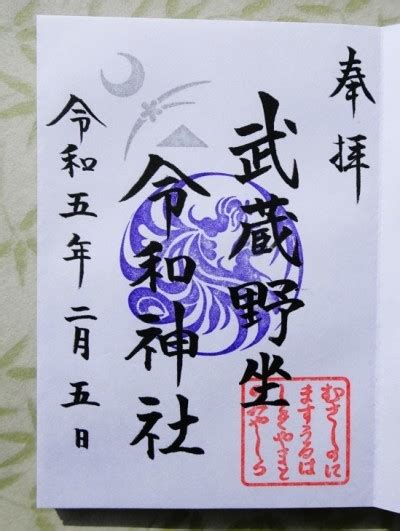 奉拝
武蔵野坐
令和神社
令和五年二月五日
むさしのに
ますうるは
しきやまと
のみやしろ